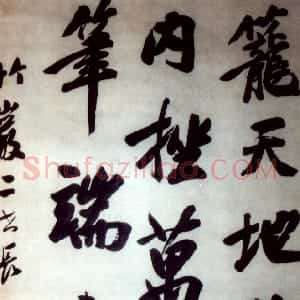 籠天地
内挫萬
筆瑞
竹巖二
長
Shufaziliao.com